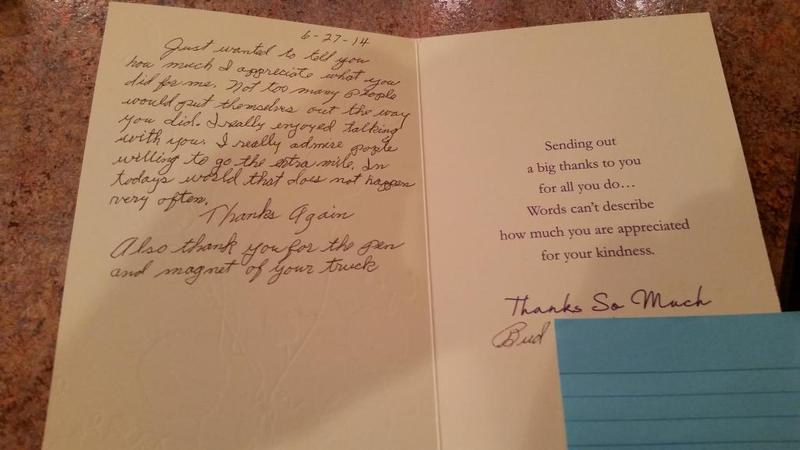 6-27-14
Just wanted to tell you
how much I appreciate what you
did for me. Not too many people
would put themselves out the way
you did. I really enjoyed talking
with you. I really admire people
willing to go the extra mile. In
todays world that does not happen
very often.
Thanks Again
Also thank you for the pen
and magnet of your truck
Sending out
a big thanks to you
for all you do...
Words can't describe
how much you are appreciated
for your kindness.
Thanks So Much
Bud